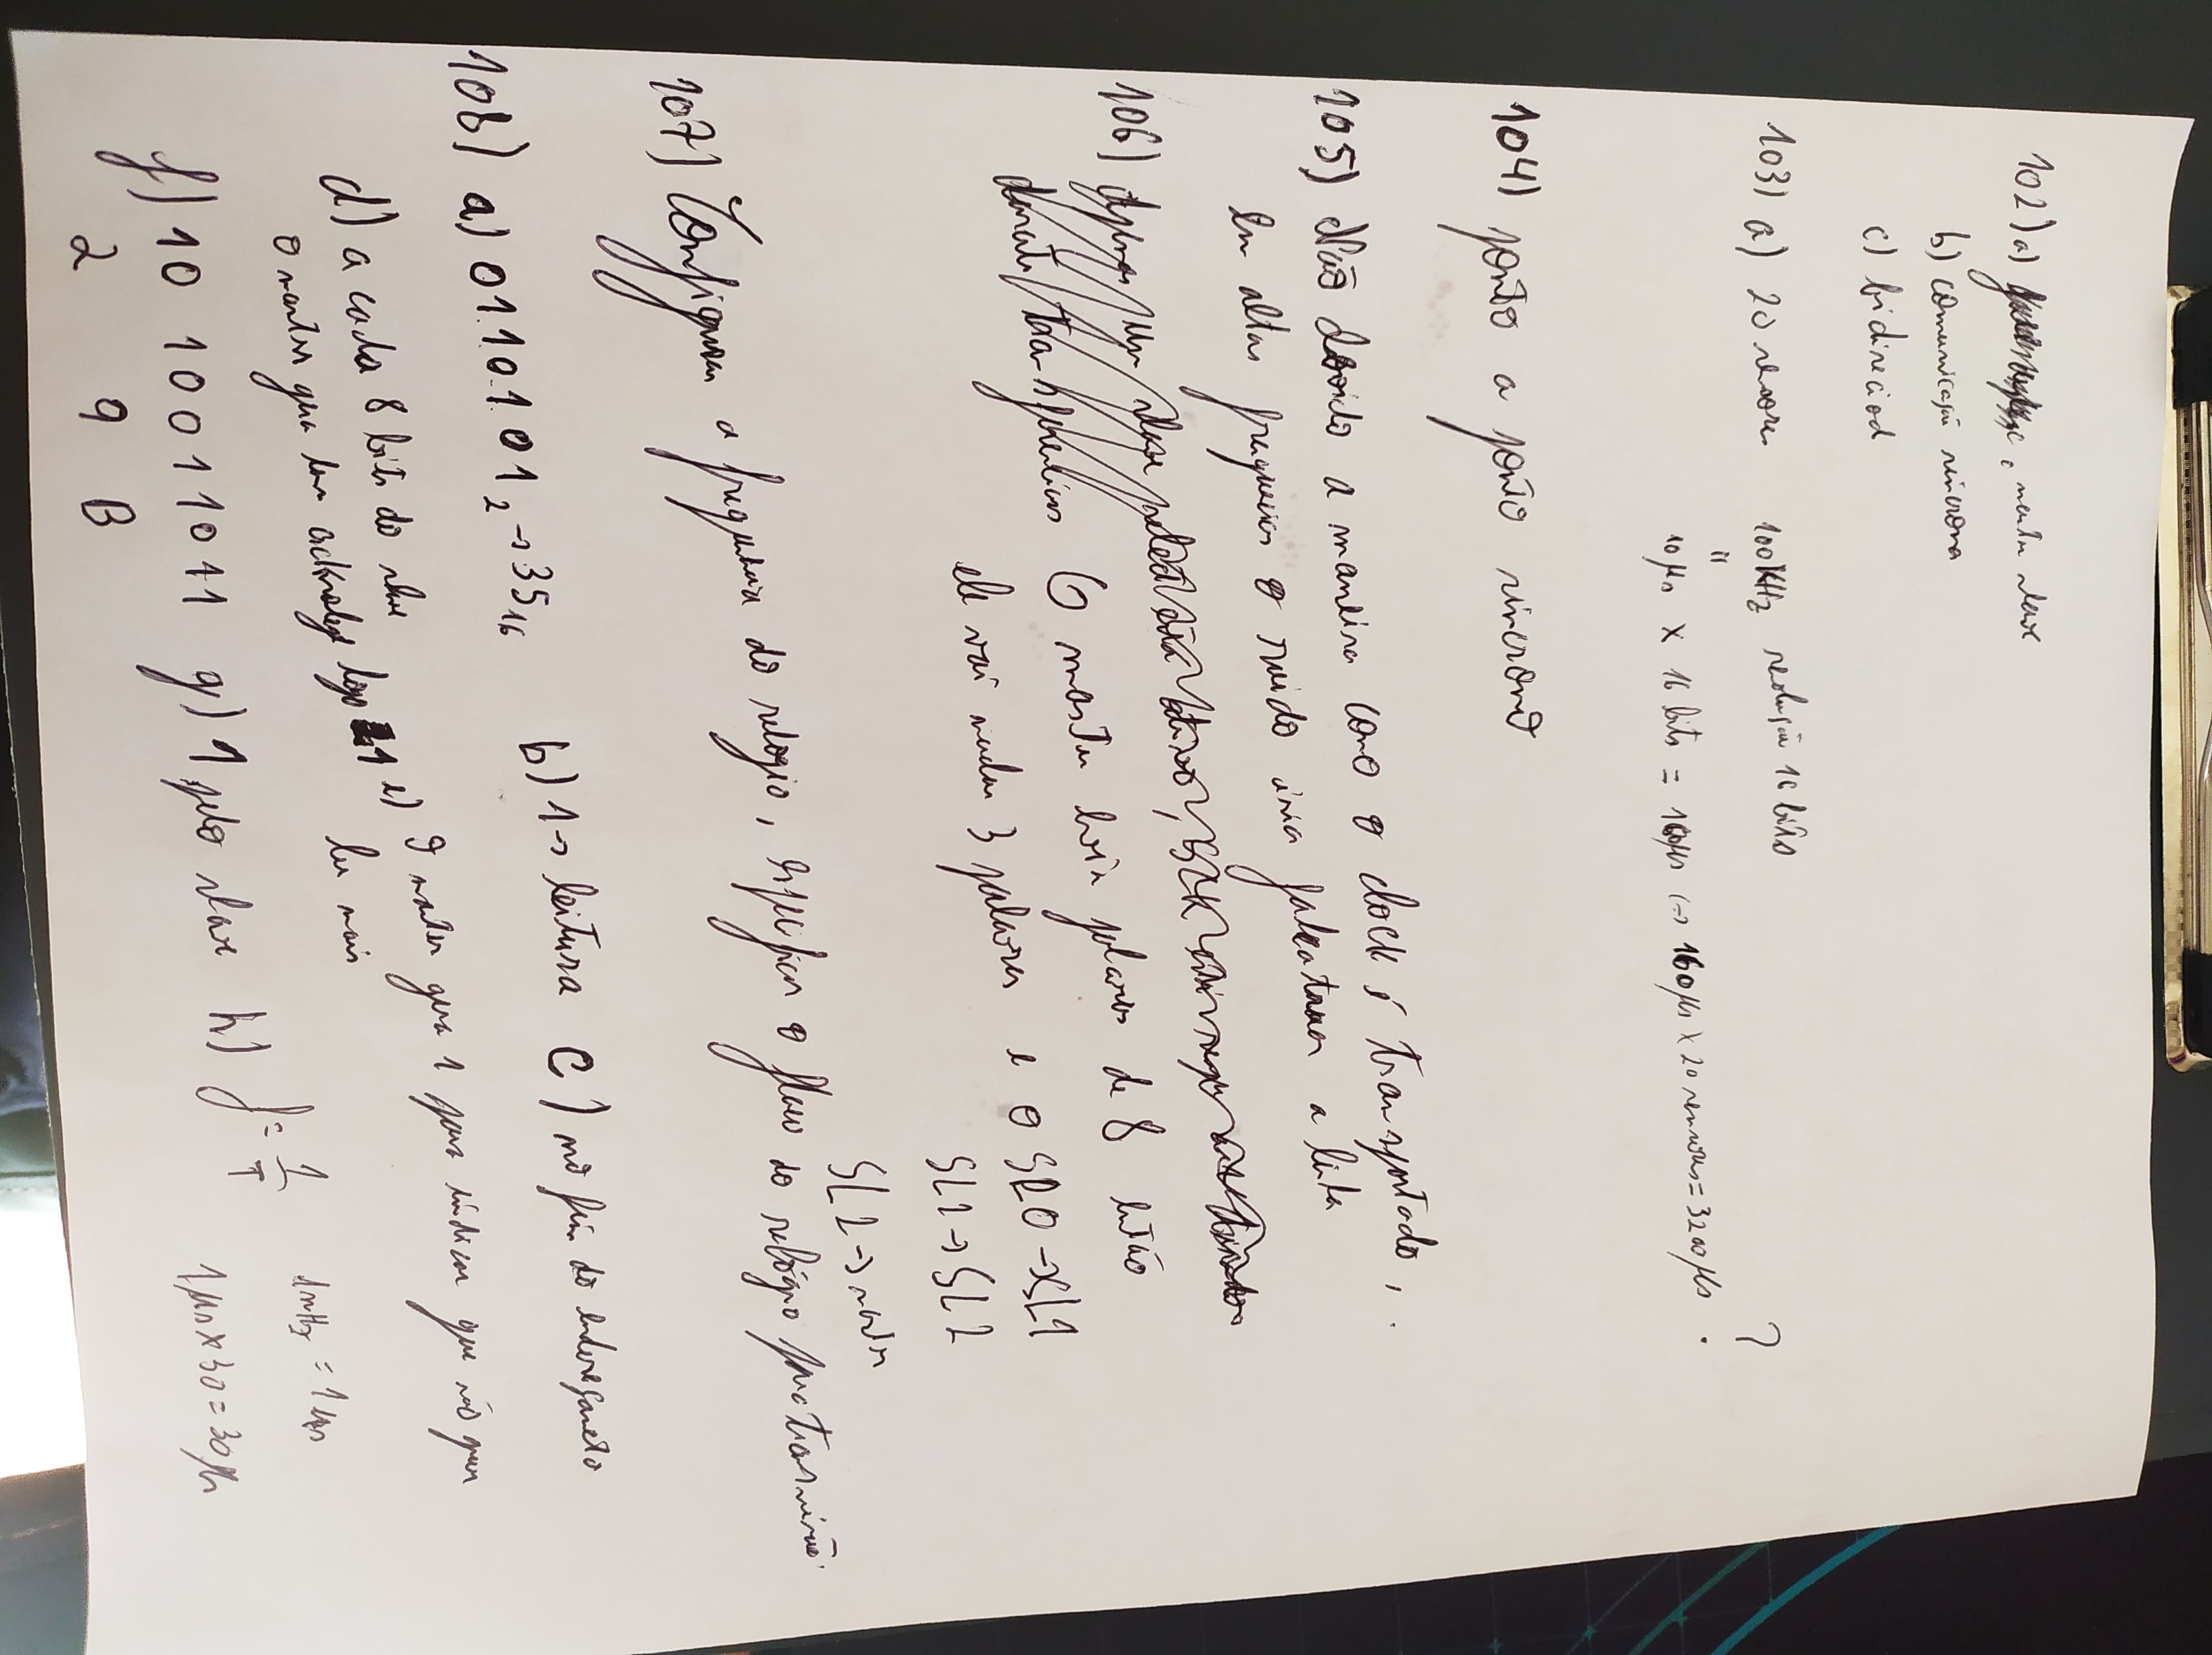 102) a) master slave
b) comunicação sincrona
c) bidirecional
103) a) 20 sensores 100KHz resolução 16 bits
=
10 µs x 16 bits = 160µs (=) 160µs x 20 sensores = 3200µs ?
104) ponto a ponto sincrono
105) Não devido a maneira como o clock é transportado,
em altas frequencias o ruido iria a linha
106) Apenas um slave está ativo, SCK
durante transferencias O master envia palavras de 8 então
ele vai mandar 3 palavras e o SL0 -> SL1
SL1 -> SL2
SL2 -> master
107) Configurar a frequencia do relogio, especificar o flanco do relógio para transmissão.
108) a) 0110101₂ -> 35₁₆ b) 1 -> leitura c) no fim do endereçamento
d) a cada 8 bits do slave
o master gera um acknolege logo 1 e) O master gera 1 para indicar que não quer
ler mais
f) 10 10011011 g) 1 pelo slave h) f = 1/T 1mHz = 1 µs
2 9 B 1µs x 30 = 30µs